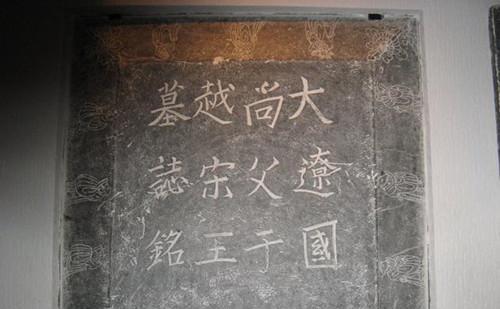 大遼國
尚父于
越宋王
墓誌銘